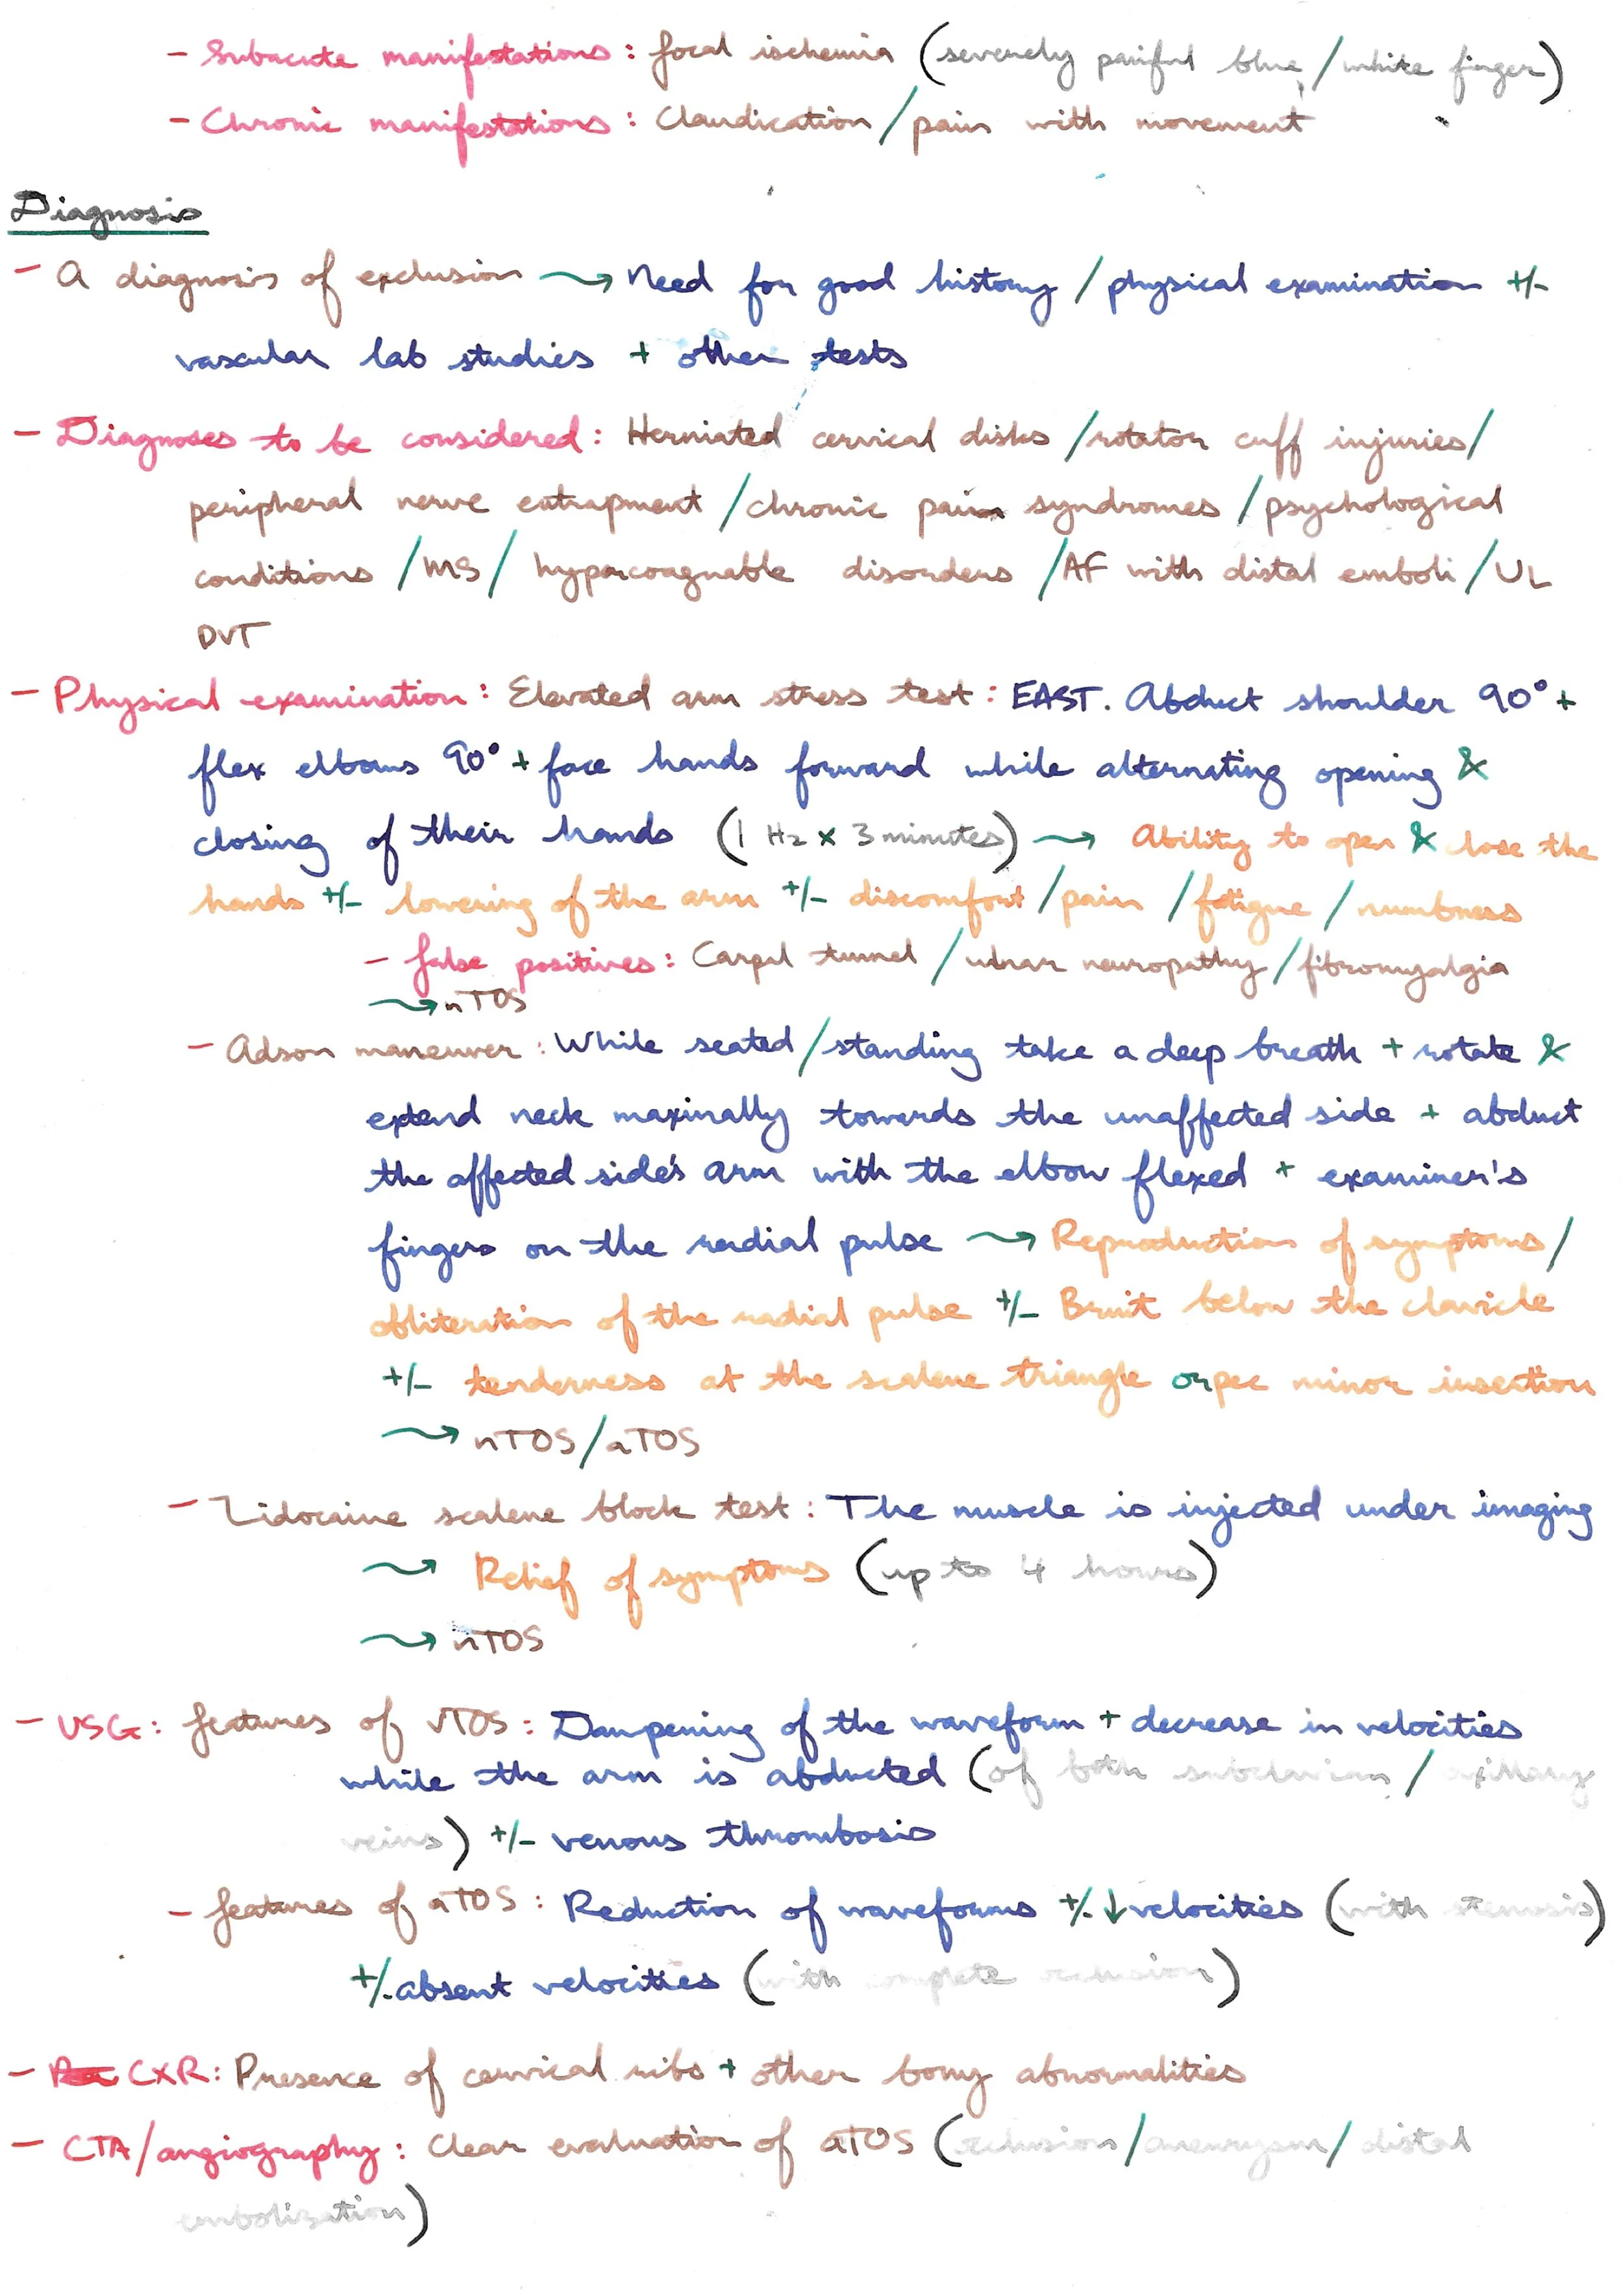 - Subacute manifestations: focal ischemia (severely painful blue/white finger)
- Chronic manifestations: Claudication/pain with movement
Diagnosis
- A diagnosis of exclusion → Need for good history/physical examination +/-
vascular lab studies + other tests
- Diagnoses to be considered: Herniated cervical disks/rotator cuff injuries/
peripheral nerve entrapment/chronic pain syndromes/psychological
conditions/MS/hypercoaguable disorders/AF with distal emboli/UL
DVT
- Physical examination: Elevated arm stress test: EAST. Abduct shoulder 90° +
flex elbows 90° + face hands forward while alternating opening &
closing of their hands (1 Hz x 3 minutes) → Ability to open & close the
hands +/- lowering of the arm +/- discomfort/pain/fatigue/numbness
- false positives: Carpal tunnel/ulnar neuropathy/fibromyalgia
→ nTOS
- Adson maneuver: While seated/standing take a deep breath + rotate &
extend neck maximally towards the unaffected side + abduct
the affected side's arm with the elbow flexed + examiner's
fingers on the radial pulse → Reproduction of symptoms/
obliteration of the radial pulse +/- Bruit below the clavicle
+/- tenderness at the scalene triangle or pec minor insertion
→ nTOS/aTOS
- Lidocaine scalene block test: The muscle is injected under imaging
→ Relief of symptoms (up to 4 hours)
→ nTOS
- USG: features of vTOS: Dampening of the waveform + decrease in velocities
while the arm is abducted (of both subclavian/axillary
veins) +/- venous thrombosis
- features of aTOS: Reduction of waveforms +/- ↓velocities (with stenosis)
+/- absent velocities (with complete occlusion)
- CXR: Presence of cervical ribs + other bony abnormalities
- CTA/angiography: Clear evaluation of aTOS (occlusion/aneurysm/distal
embolization)